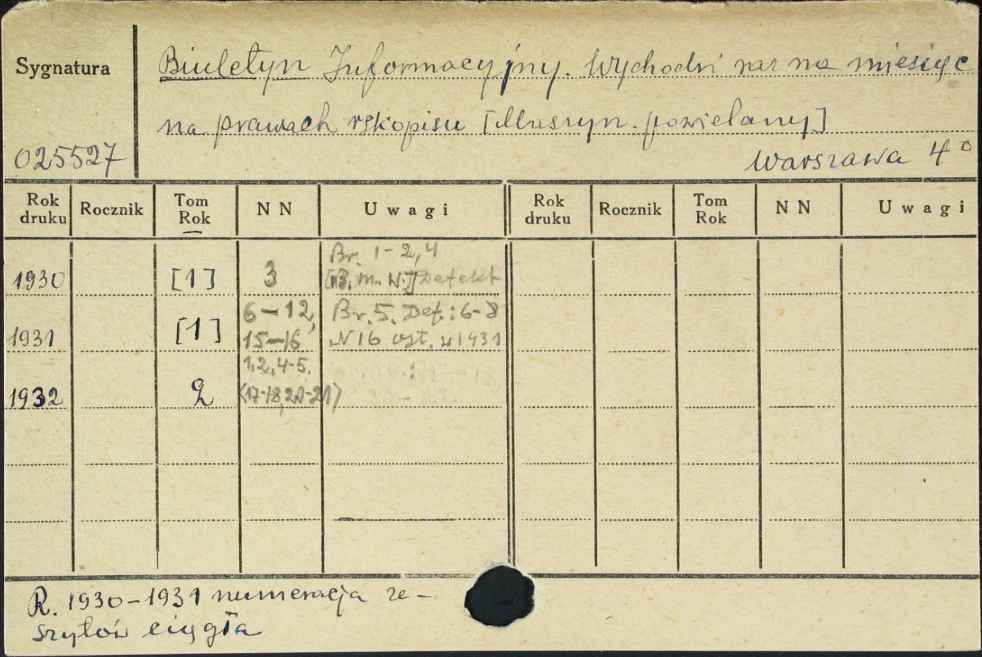 Sygnatura
Biuletyn Informacyjny. Wychodzi raz na miesiąc
na prawach rękopisu [Maszyn. powielany]
025527
Warszawa 4°
Rok druku Rocznik Tom Rok NN Uwagi Rok druku Rocznik Tom Rok NN Uwagi
Br. 1-2, 4
1930 [1] 3 [B. m. N.] Defekt
6-12, Br. 5. Def: 6-8
1931 [1] 15-16 N 16 ost. z 1931
1, 2, 4-5.
1932 2 (17-18, 20-21)
R. 1930-1931 numeracja ze-
szytów ciągła